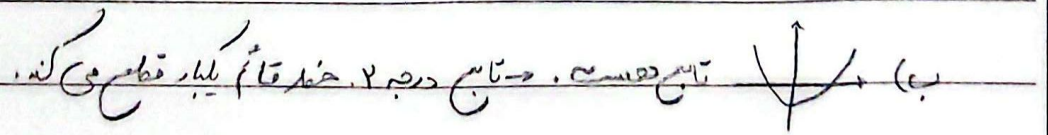 ب) تابع هست. → تابع درجه ۲. خط قائم یکبار قطع می کند.